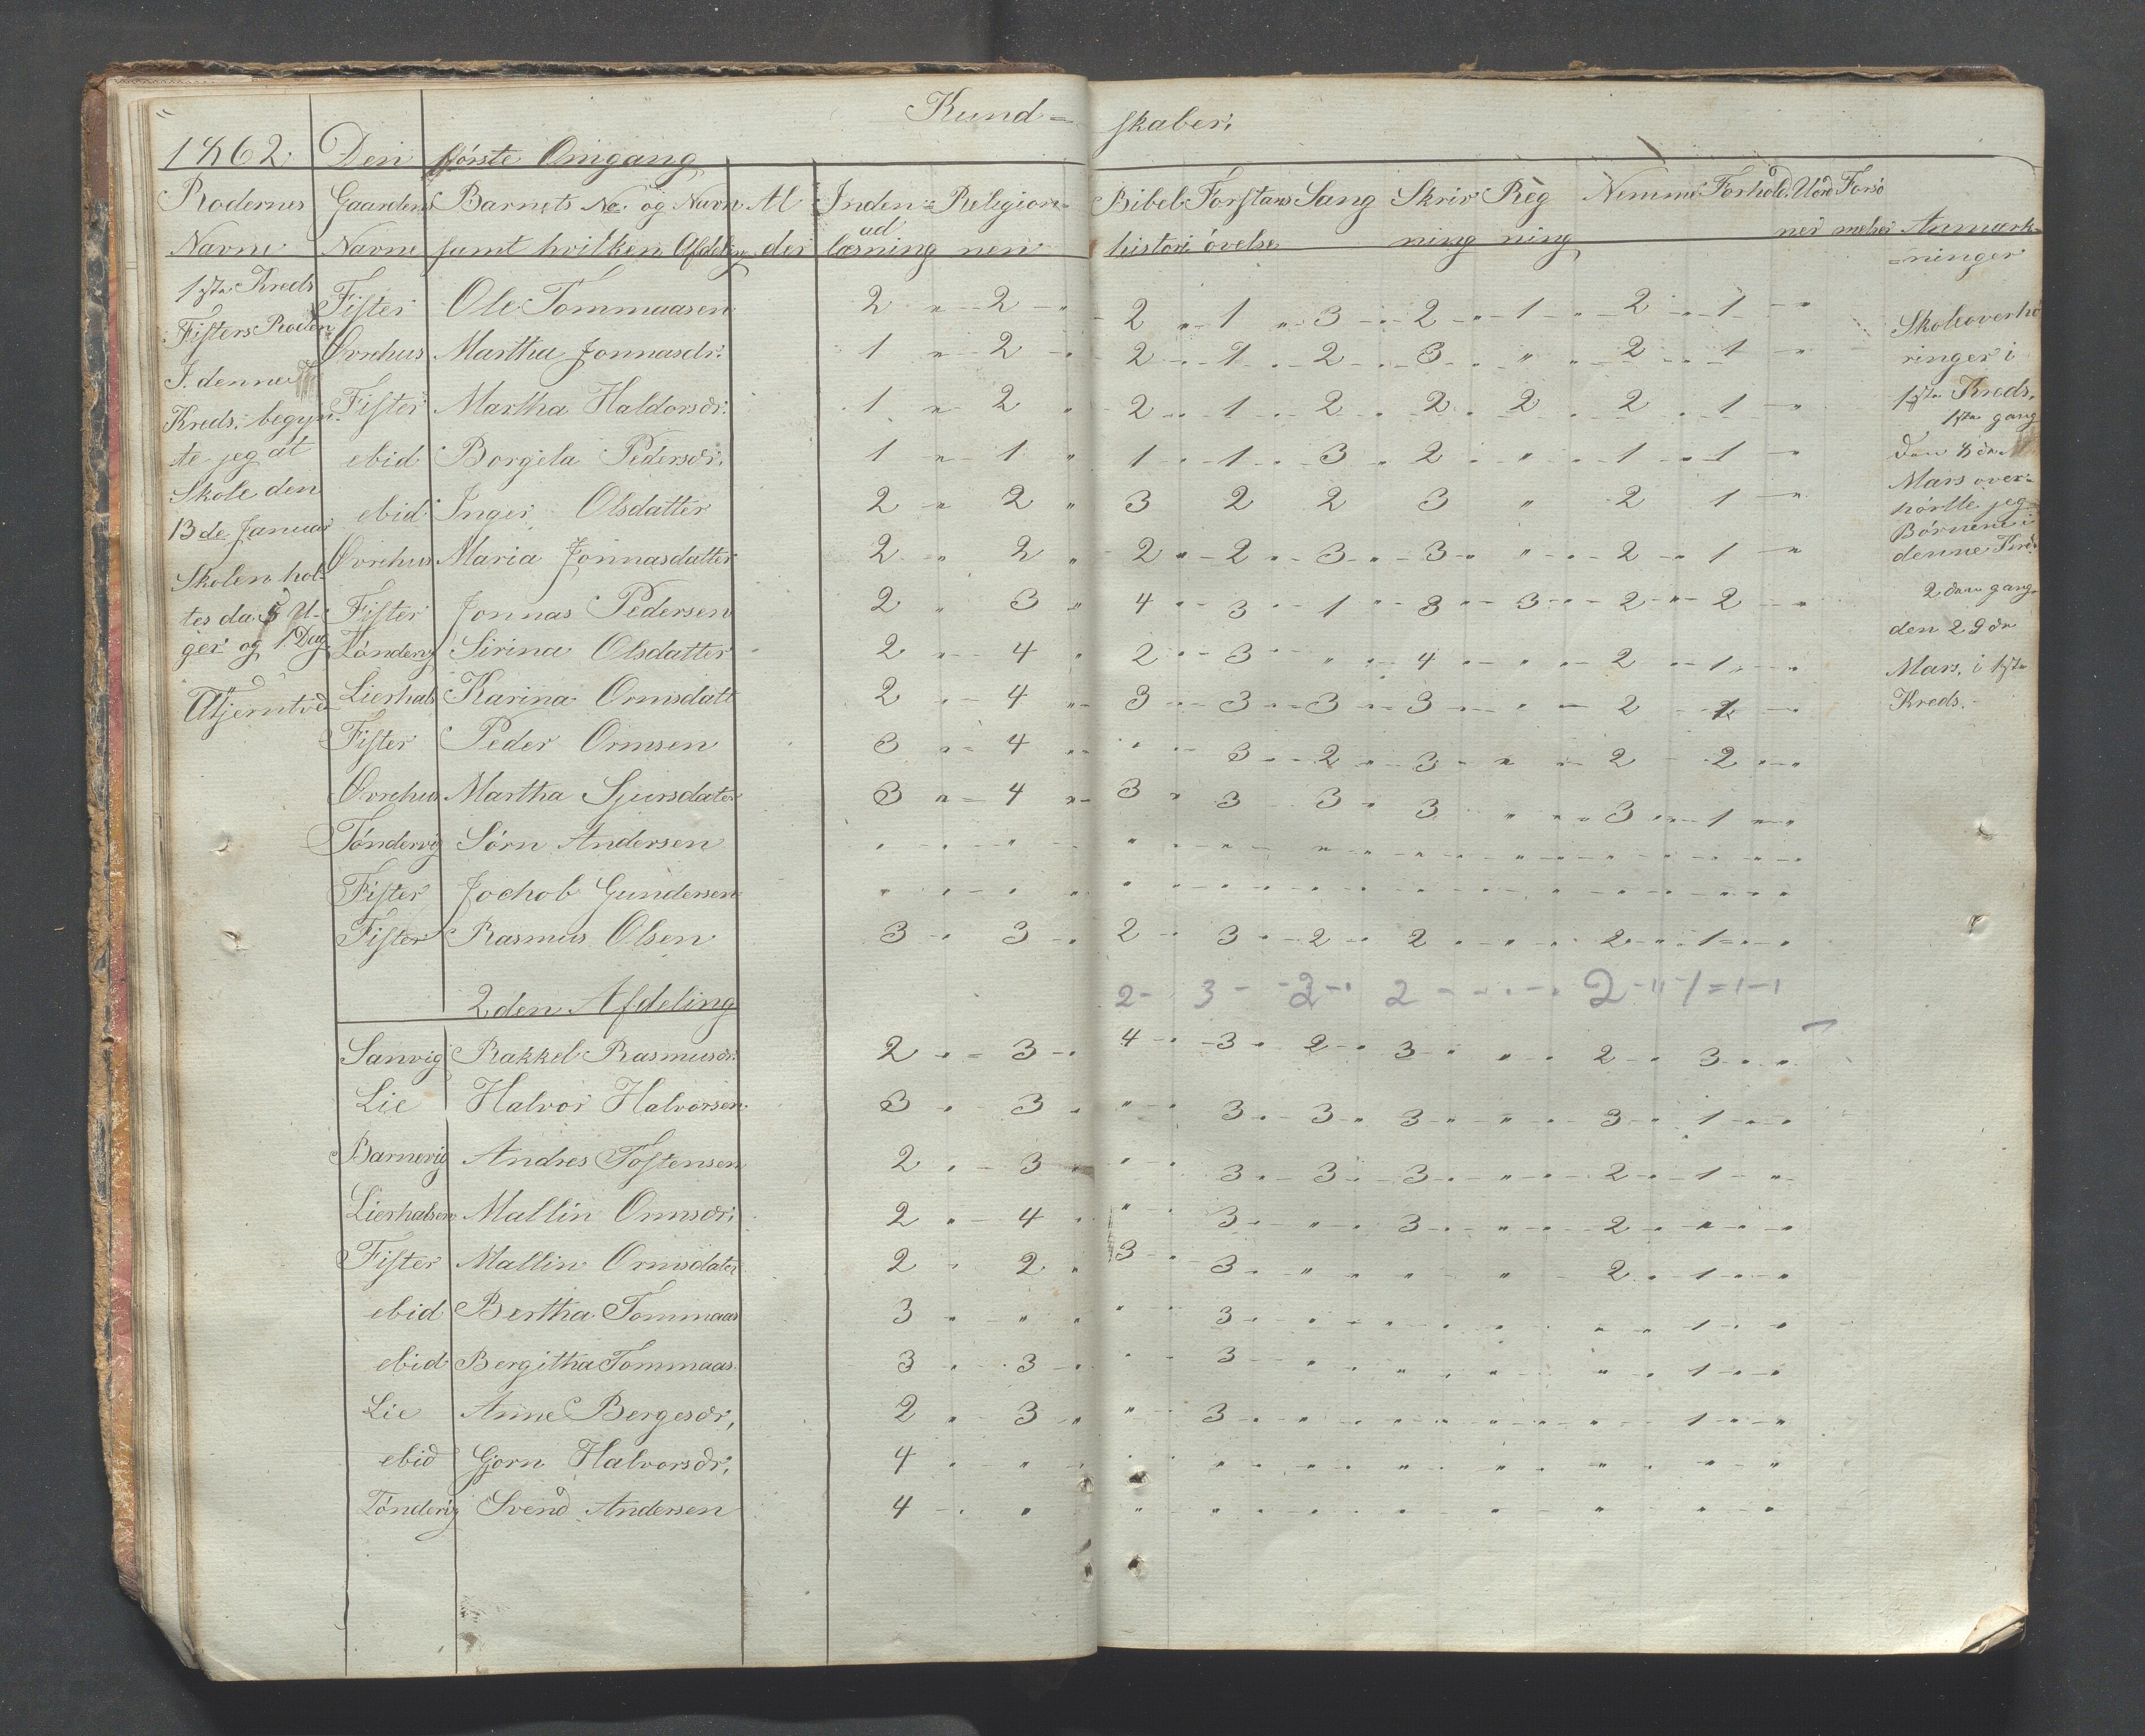 Kund= skaber.
1862. Den første Omgang
Rodernes Gaardens Barnets No og Navn Al Inden= Religion= Bibel Forstans Sang Skriv Reg Nemme Forhold Uord Forsø
Navne Navne samt hvilken Afdeling der ad læsning nen histori øvelse ning ning ner melser Anmærk=
=ninger
1ste Kreds
Fisters Roden
I denne
Kreds begyn=
te jeg at
Skole den
13de Januar
Skolen hol=
tes da 5 U=
ger og 1 Dag
Fister Ole Tommaasen 2 " 2 " 2 " 1 " 3 " 2 " 1 " 2 " 1 "
Ørrehus Martha Jonnasdr. 1 " 2 " 2 " 1 " 2 " 3 " " " 2 " 1 "
Fister Martha Haldorsdr. 1 " 2 " 2 " 1 " 2 " 2 " 2 " 2 " 1 "
ebid Borgela Pedersdr. 1 " 1 " 1 " 1 " 3 " 2 " " " 1 " 1 "
ebid Inger Olsdatter 2 " 2 " 3 2 2 3 " 2 1 "
Ørrehus Maria Jonnasdatter 2 " 2 " 2 " 2 " 3 " 3 " " " 2 " 1 "
Fister Jonnas Pedersen 2 " 3 " 4 " 3 " 1 " 3 " 3 " 2 " 2 "
Tønderg Sirina Olsdatter 2 " 4 " 2 " 3 " " " 4 " " " 2 " 1 "
Lierhals Karina Ormsdatt 2 " 4 " 3 " 3 " 3 " 3 " " " 2 " 1 "
Fister Peder Ormsen 3 " 4 " " " 3 " 2 " 3 " " " 2 " 2 "
Ørrehus Martha Sjursdater 3 " 4 " 3 " 3 " 3 " 3 " " " 3 " 1 "
Tøndervig Sørn Andersen " " " " " " " " " "
Fister Jochob Gundersen " " " " " " " " " "
Fister Rasmus Olsen 3 " 3 " 2 " 3 " 2 " 2 " " " 2 " 1 "
2den Afdeling 2 - 3 - 2 - 2 - - - 2 - " 1 = 1 - 1
Sanvig Rakkel Rasmusdr. 2 " 3 " 4 " 3 " 2 " 3 " " " 2 " 3 "
Lie Halvor Halvorsen 3 " 3 " " " 3 " 3 " 3 " " " 3 " 1 "
Barnevig Andres Tostensen 2 " 3 " " " 3 " 3 " 3 " " " 2 " 1 "
Lierhalsen Mallin Ormsdr. 2 " 4 " " " 3 " " " 3 " " " 2 " " "
Fister Mallin Ormsdater 2 " 2 " 3 " 3 " " " " " " " 2 " 1 "
ebid Bertha Tommaas 3 " " " " " 3 " " " " " " " " " 1 "
ebid Bergitha Tommaas 3 " 3 " " " 3 " " " " " " " " " 1 "
Lie Anne Bergesdr, 2 " 3 " " " 3 " " " " " " " " " 1 "
ebid Gjorn Halvorsdr, 4 " " " " " " " " "
Tønderig Svend Andersen 4 " " " " " " " " "
Skoleoverhø
ringer i
1ste Kreds.
1ste gang
Den 8de
Mars over=
hørtte jeg
Børnene i
denne Kreds
2den gang
den 29de
Mars. i 1ste
Kreds.